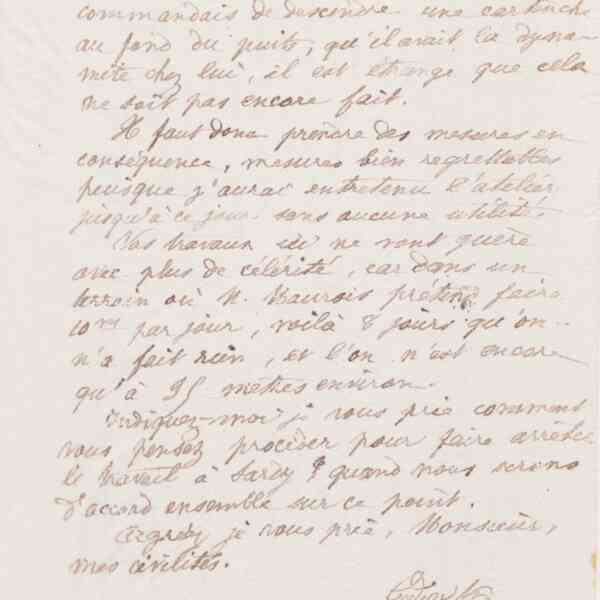 commandais de descendre une cartouche
au fond du puits, qu'il avait la dyna-
mite chez lui, il est étrange que cela
ne soit pas encore fait.
Il faut donc prendre des mesures en
conséquence, mesures bien regrettables
puisque j'aurai entretenu l'atelier
jusqu'à ce jour sans aucune utilité.
Vos travaux ici ne vont guère
avec plus de célérité, car dans un
terrain où M. prétend faire
10m par jour, voilà 8 jours qu'on
n'a fait rien, et l'on n'est encore
qu'à 25 mètres environ.
Indiquez-moi je vous prie comment
vous pensez procéder pour faire arrêter
le travail à quand nous serons
d'accord ensemble sur ce point.
Agréez je vous prie, Monsieur,
mes civilités.